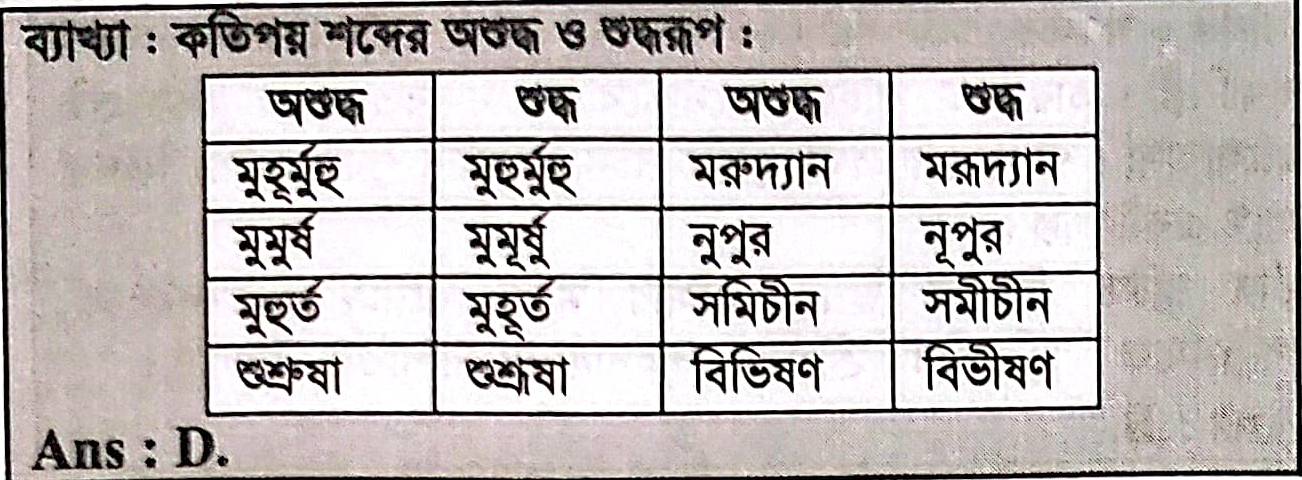 ব্যাখ্যা : কতিপয় শব্দের অশুদ্ধ ও শুদ্ধরূপ :
অশুদ্ধ শুদ্ধ অশুদ্ধ শুদ্ধ
মুহূর্মুহু মুহুর্মুহু মরুদ্যান মরূদ্যান
মুমূর্ষ মুমূর্ষু নুপুর নূপুর
মুহুর্ত মুহূর্ত সমিচীন সমীচীন
শুশ্রুষা শুশ্রূষা বিভিষণ বিভীষণ
Ans : D.